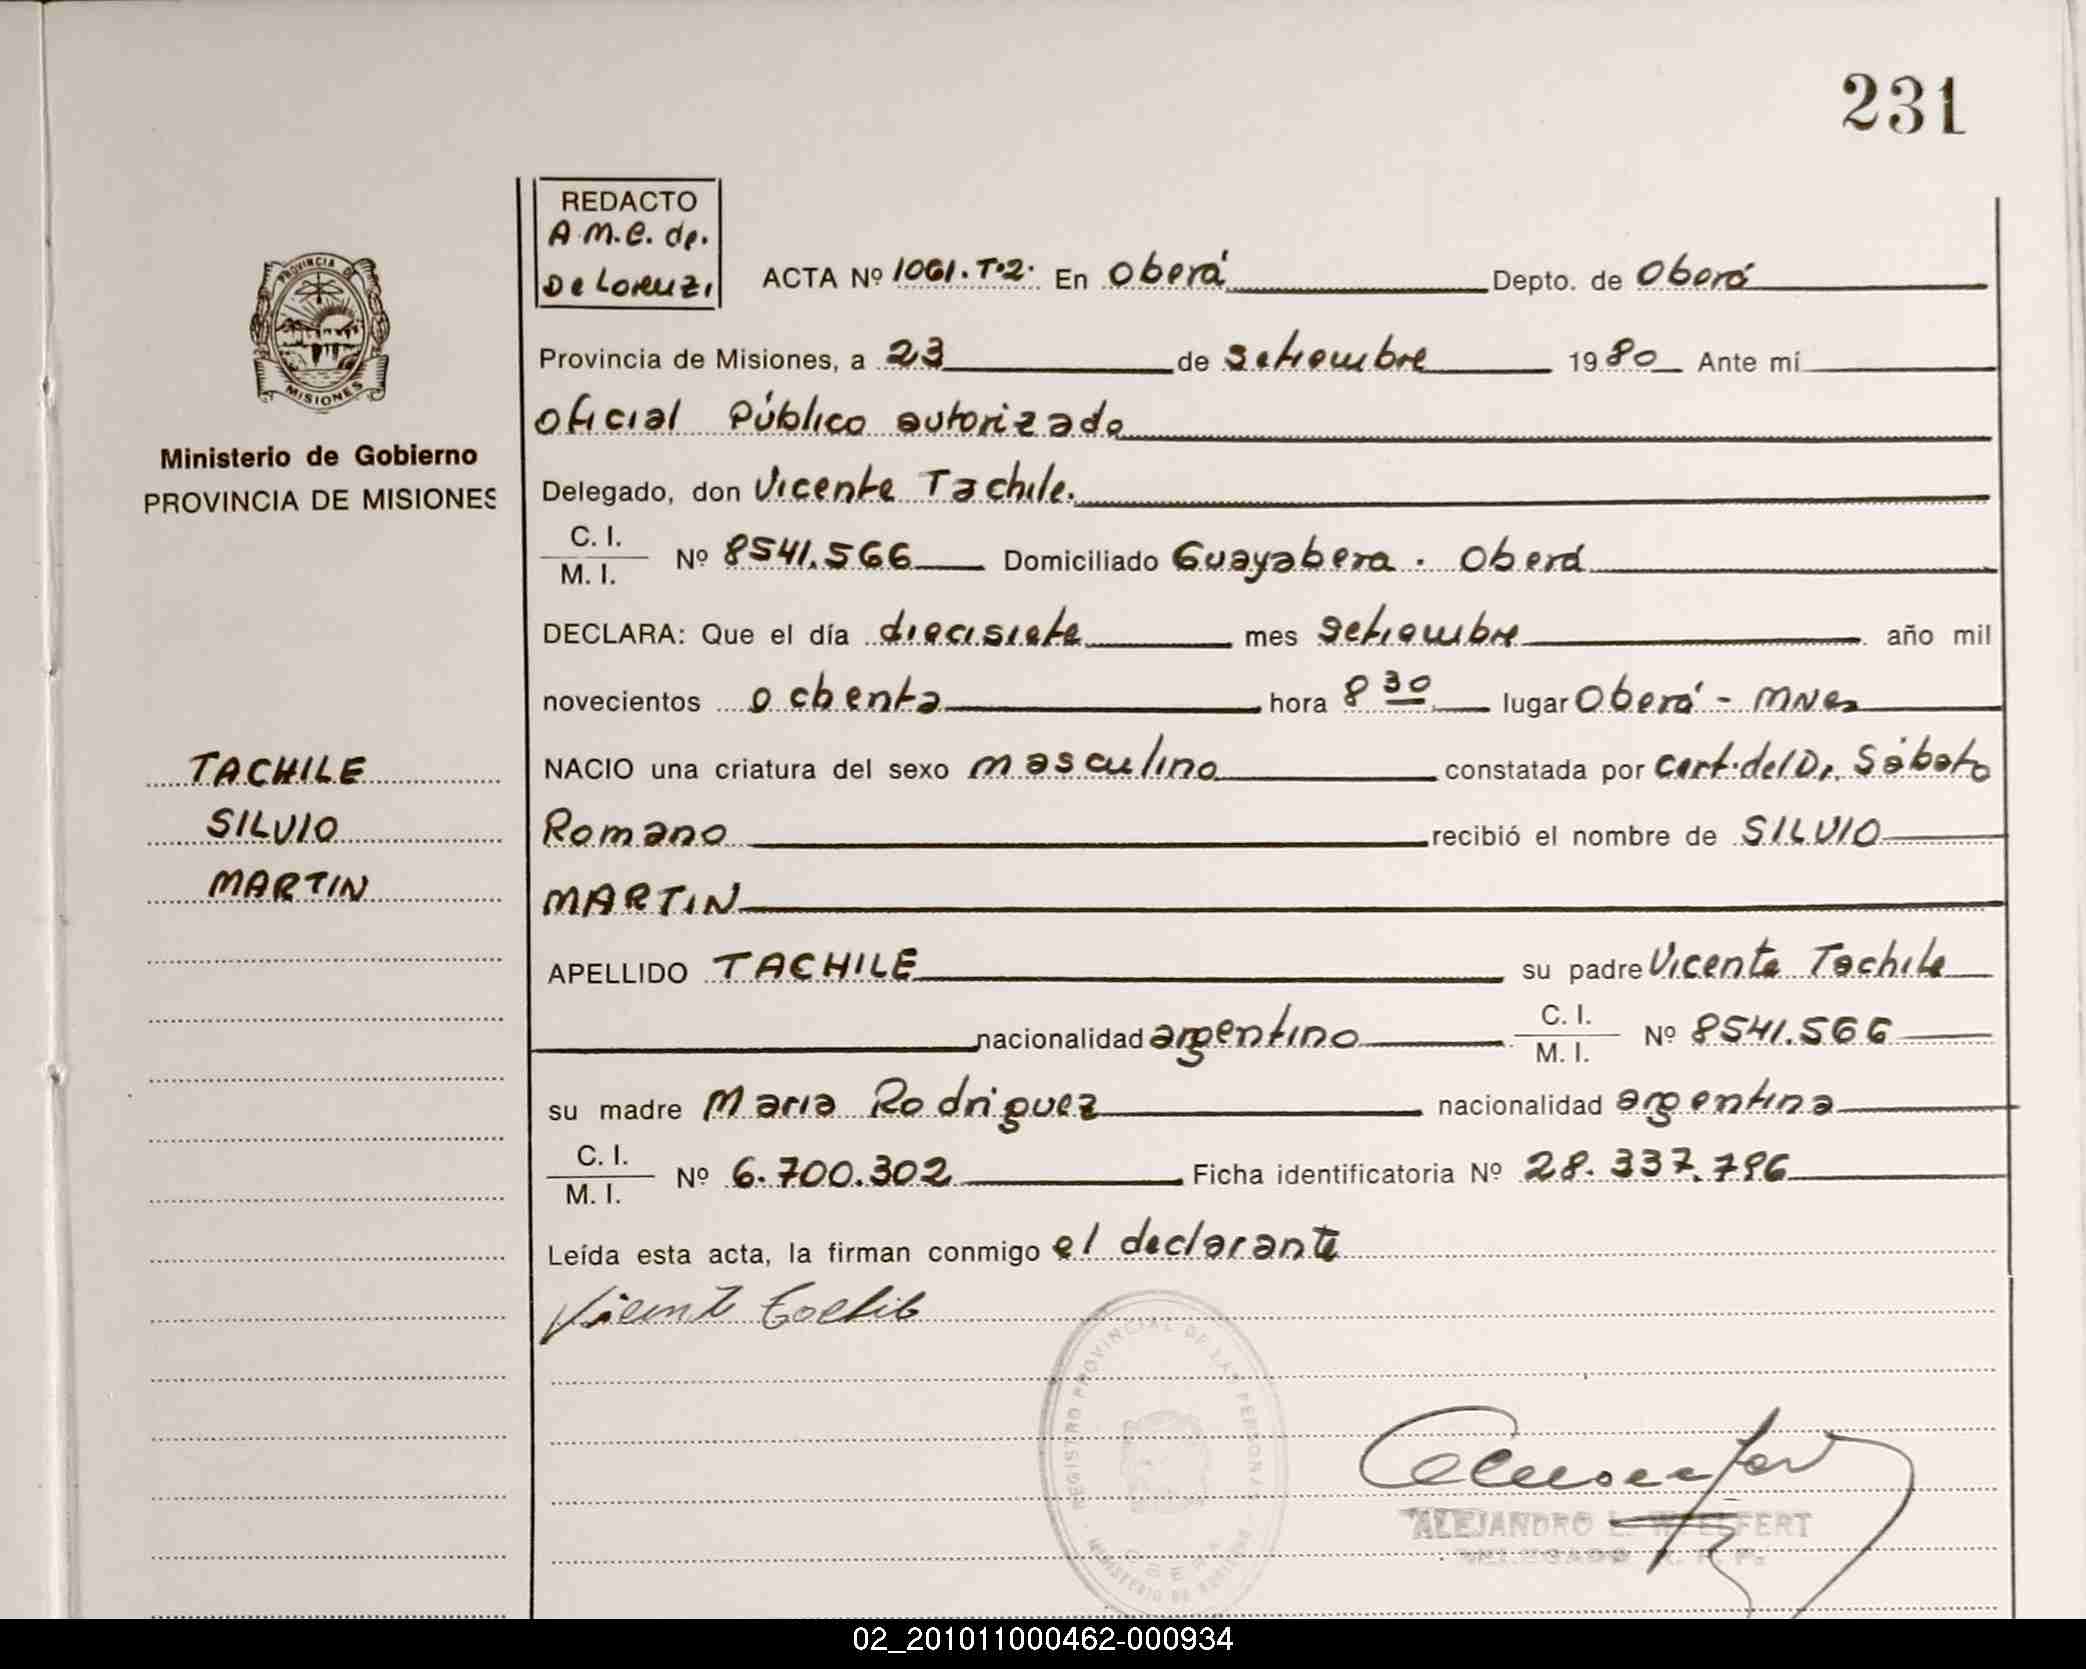 231
REDACTO
A.M.C. de.
De Lorenzi
ACTA Nº 1061.T.2. En Oberá Depto. de Oberá
Provincia de Misiones, a 23 de setiembre 1980 Ante mí
PROVINCIA DE
MISIONES
oficial Público autorizado
Ministerio de Gobierno
PROVINCIA DE MISIONES
Delegado, don Vicente Tachile.
C. I.
M. I. Nº 8541.566 Domiciliado Guayabera . Oberá
DECLARA: Que el día diecisiete mes setiembre año mil
novecientos ochenta hora 8 30 lugar Oberá - MNes
TACHILE
SILVIO
MARTIN
NACIO una criatura del sexo masculino constatada por cert. del Dr. Sábato
Romano recibió el nombre de SILVIO
MARTIN
APELLIDO TACHILE su padre Vicente Tachile
nacionalidad argentino C. I.
M. I. Nº 8541.566
su madre Maria Rodriguez nacionalidad argentina
C. I.
M. I. Nº 6.700.302 Ficha identificatoria Nº 28.337.796
Leída esta acta, la firman conmigo el declarante
REGISTRO PROVINCIAL DE LAS PERSONAS
OBERA
ALEJANDRO L. WELFERT
DELEGADO R. P. P.
02_201011000462-000934